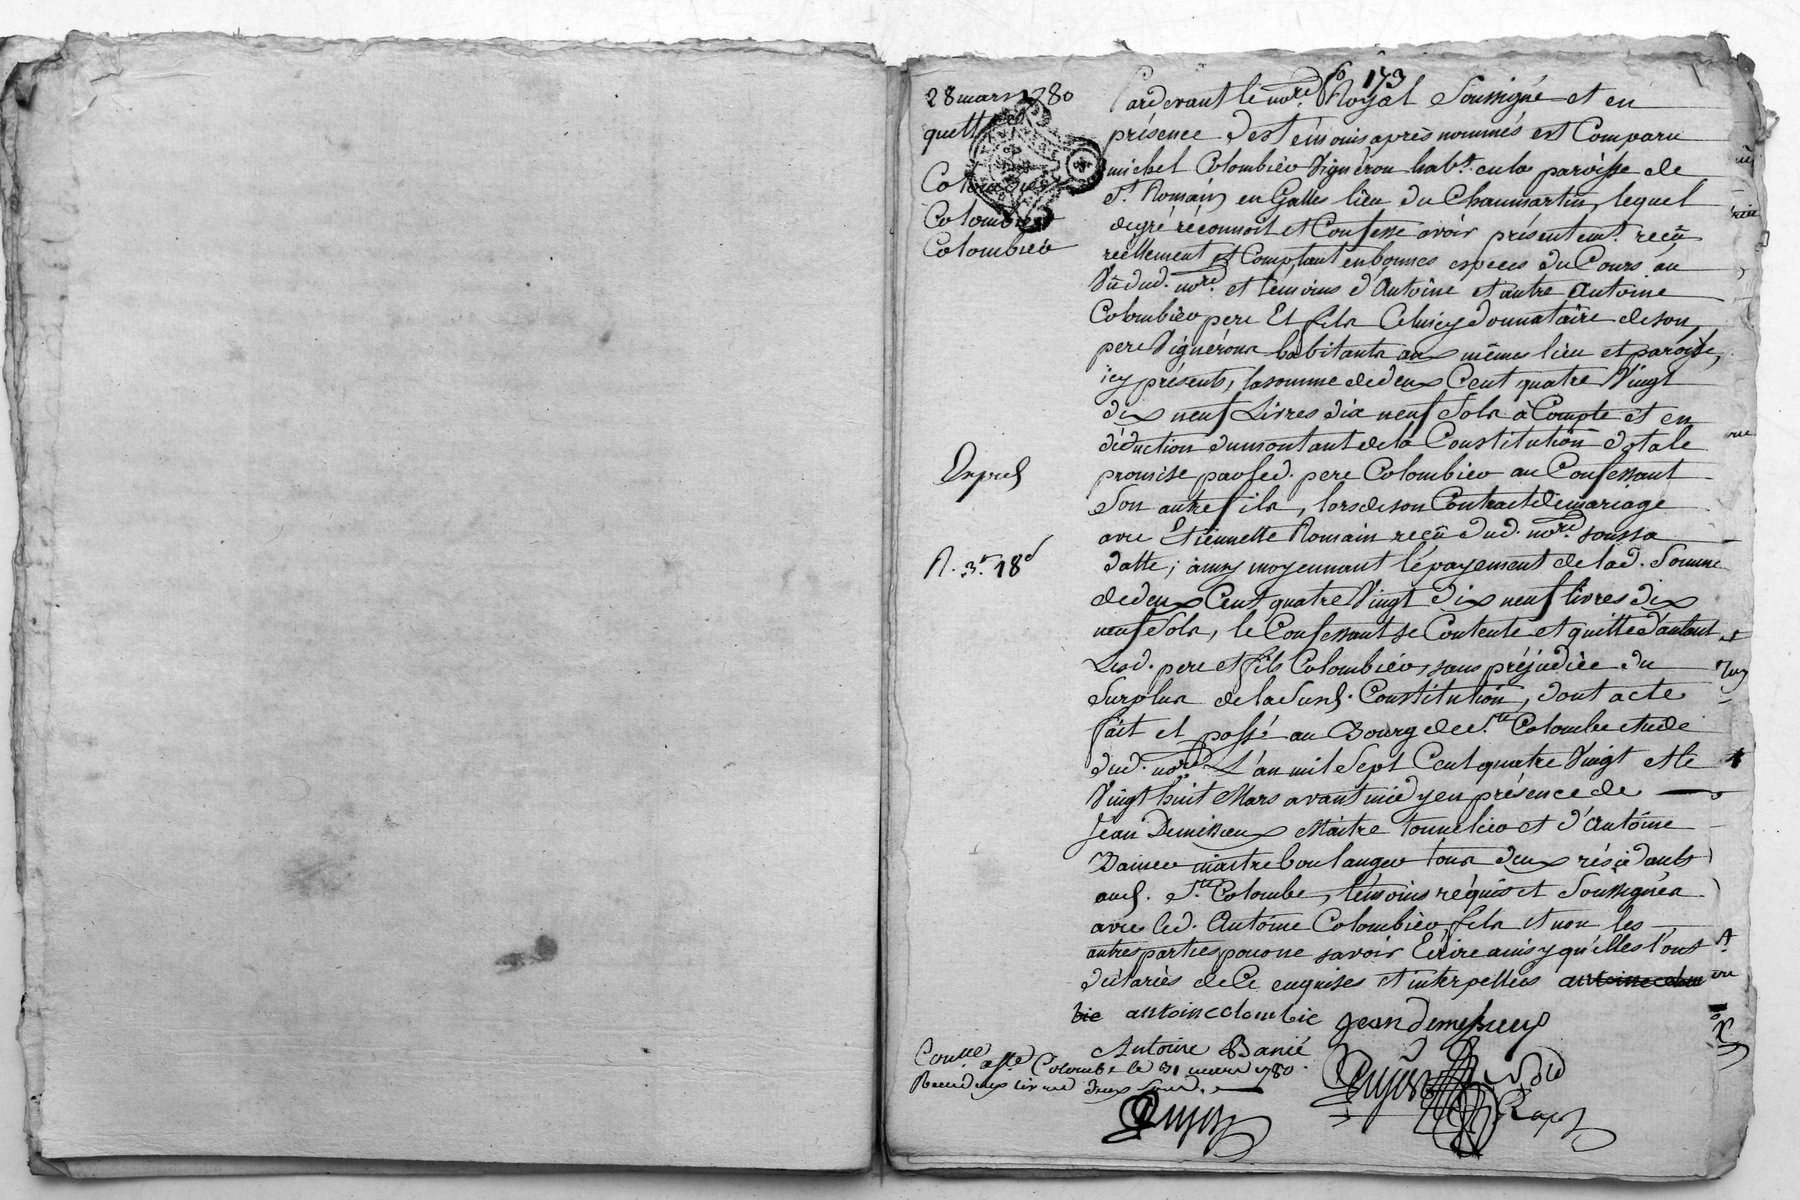 173
28 mars 1780
quittce
Colombier
Colombier
Colombier
Expref
R. 3# 18d
Pardevant le nore. Royal Soussigné et en
présence des témoins après nommés est Comparu
michel Colombier Vigneron habt. en la paroisse de
St. Romain en Galles lieu du Chaumartin, lequel
de gré réconnoit et Confesse avoir présentemt. reçû
reellement et Comptant en bonnes especes du Cours au
Vû dud. nore. et temoins d'Antoine et autre Antoine
Colombier pere Et fils Celuicy donnataire de son
pere Vignérons habitants aux mêmes lieu et paroisse,
icy présents, la somme de deux Cent quatre Vingt
dix neuf Livres dix neuf Sols à Compte et en
déduction du montant de la Constitution dotale
promise par led. pere Colombier au Confessant
Son autre fils, lors de son Contract de mariage
avec Etiennette Romain reçû dud. nore. sous sa
datte; ainsy moyennant le payement de lad. Somme
de deux Cent quatre Vingt dix neuf livres dix
neuf Sols, le Confessant se Contente et quitte d'autant
Lesd. pere et fils Colombier, sans préjudice du
Surplus de la Susd. Constitution, dont acte
fait et passé au Bourg de Ste. Colombe etude
dud. nore. L'an mil Sept Cent quatre Vingt et le
Vingt huit Mars avant midy en présence de
Jean Demeseux Maitre tonnelier et d'Antoine
Banier maitre boulanger tous deux résidants
aud. Ste. Colombe, témoins réquis et Soussignés
avec led. Antoine Colombier, fils et non les
autres parties pour ne savoir Ecrire ainsy qu'elles l'ont
déclarés de Ce enquises et interpellées antoine colom
bie antoine colombie jean demeseux
Antoine Banié
Conllé. a Ste Colombe le 31 mars 1780.
Reçu deux livres deux sous.